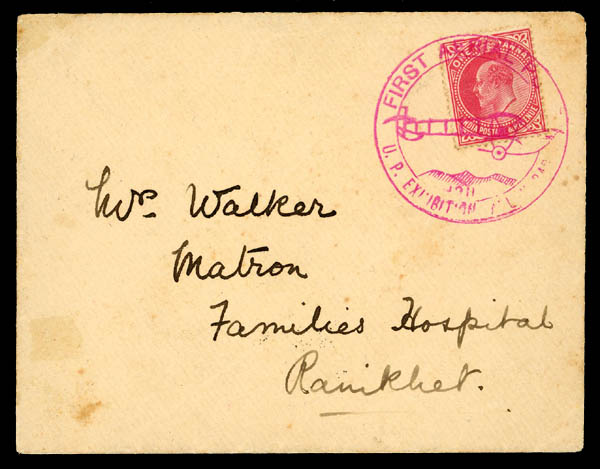 FIRST AERIAL
ONE ANNA
INDIA POSTAGE & REVENUE
1911
U. P. EXHIBITION ALLAHABAD
Mrs. Walker
Matron
Families Hospital
Ranikhet.